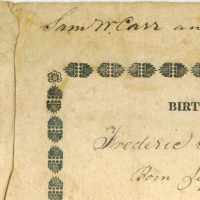 Sam W. Carr an
BIRT
Frederic
Born